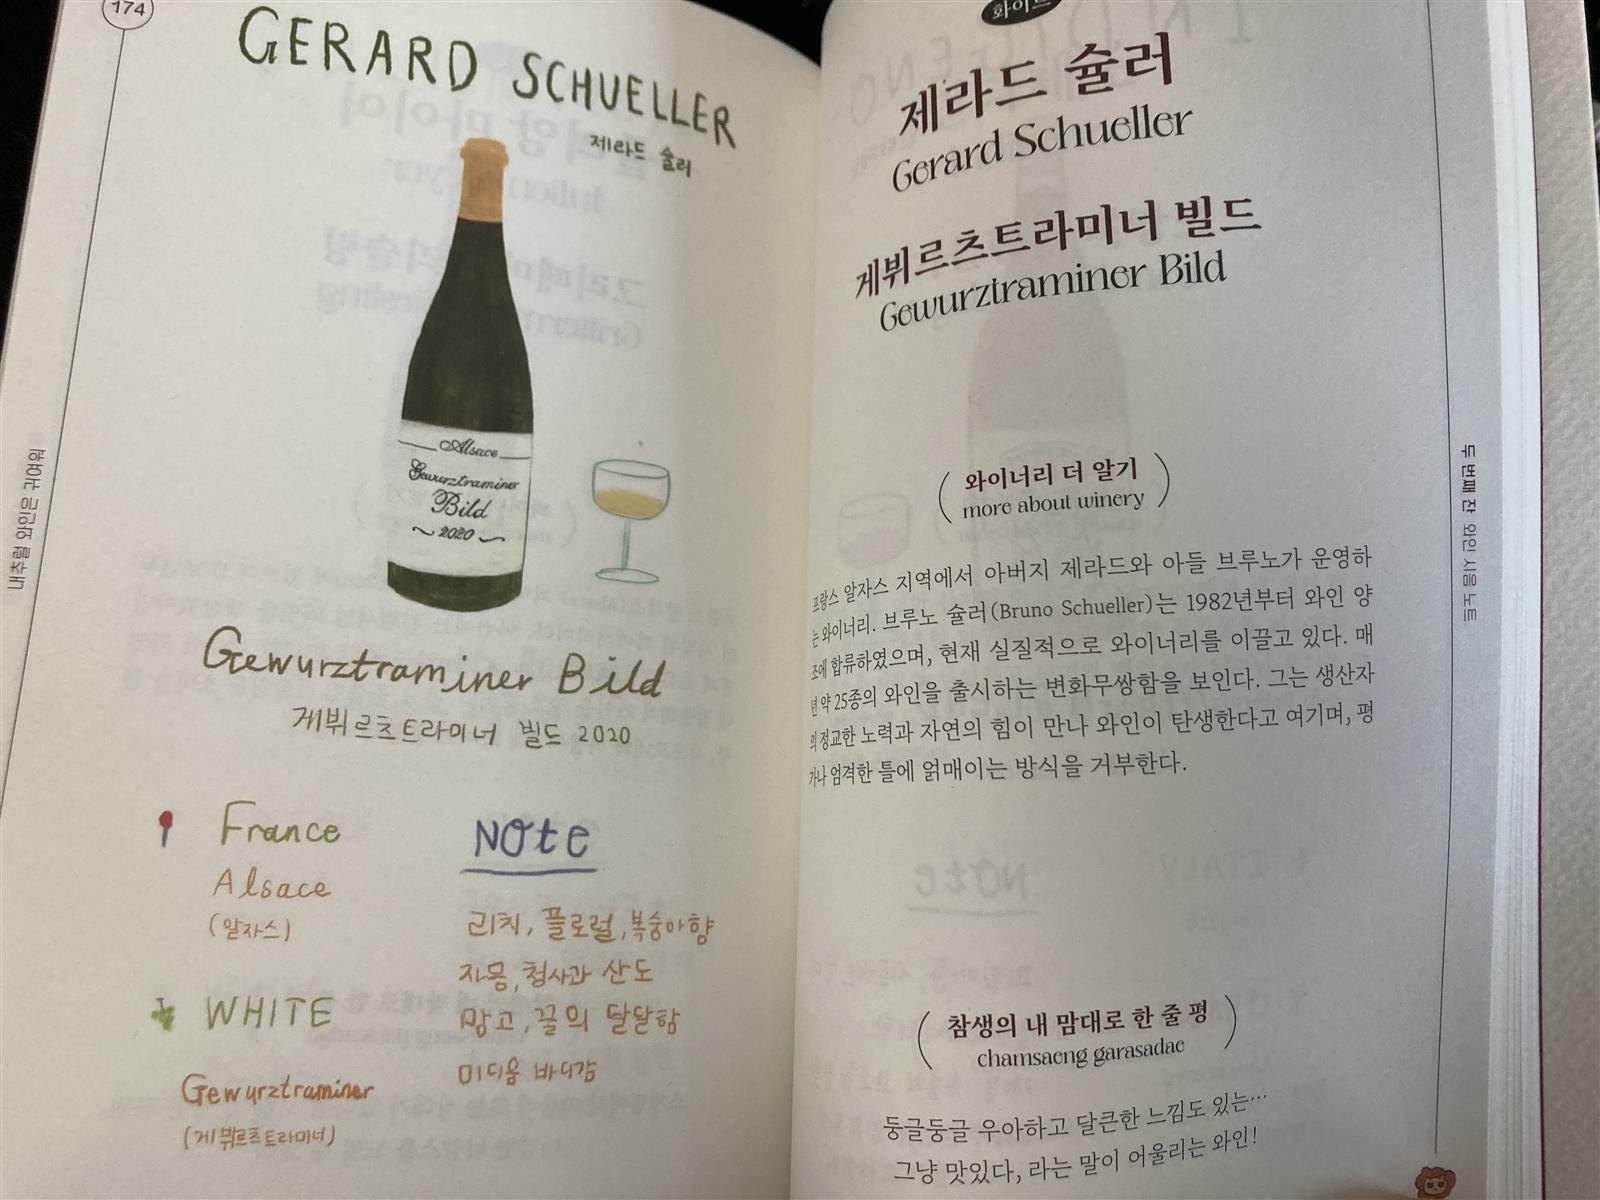 174
GERARD SCHUELLER
제라드 슐러
Alsace
Gewurztraminer
Bild
2020
Gewurztraminer Bild
게뷔르츠트라미너 빌드 2020
France
Alsace
(알자스)
WHITE
Gewurztraminer
(게뷔르츠트라미너)
NOte
리치, 플로럴, 복숭아향
자몽, 청사과 산도
망고, 꿀의 달달함
미디움 바디감
내추럴 와인은 귀여워
화이트
제라드 슐러
Gerard Schueller
게뷔르츠트라미너 빌드
Gewurztraminer Bild
와이너리 더 알기
more about winery
프랑스 알자스 지역에서 아버지 제라드와 아들 브루노가 운영하
는 와이너리. 브루노 슐러(Bruno Schueller)는 1982년부터 와인 양
조에 합류하였으며, 현재 실질적으로 와이너리를 이끌고 있다. 매
년 약 25종의 와인을 출시하는 변화무쌍함을 보인다. 그는 생산자
의 정교한 노력과 자연의 힘이 만나 와인이 탄생한다고 여기며, 평
가나 엄격한 틀에 얽매이는 방식을 거부한다.
참생의 내 맘대로 한 줄 평
chamsaeng garasadae
둥글둥글 우아하고 달큰한 느낌도 있는…
그냥 맛있다, 라는 말이 어울리는 와인!
두 번째 잔 와인 시음 노트